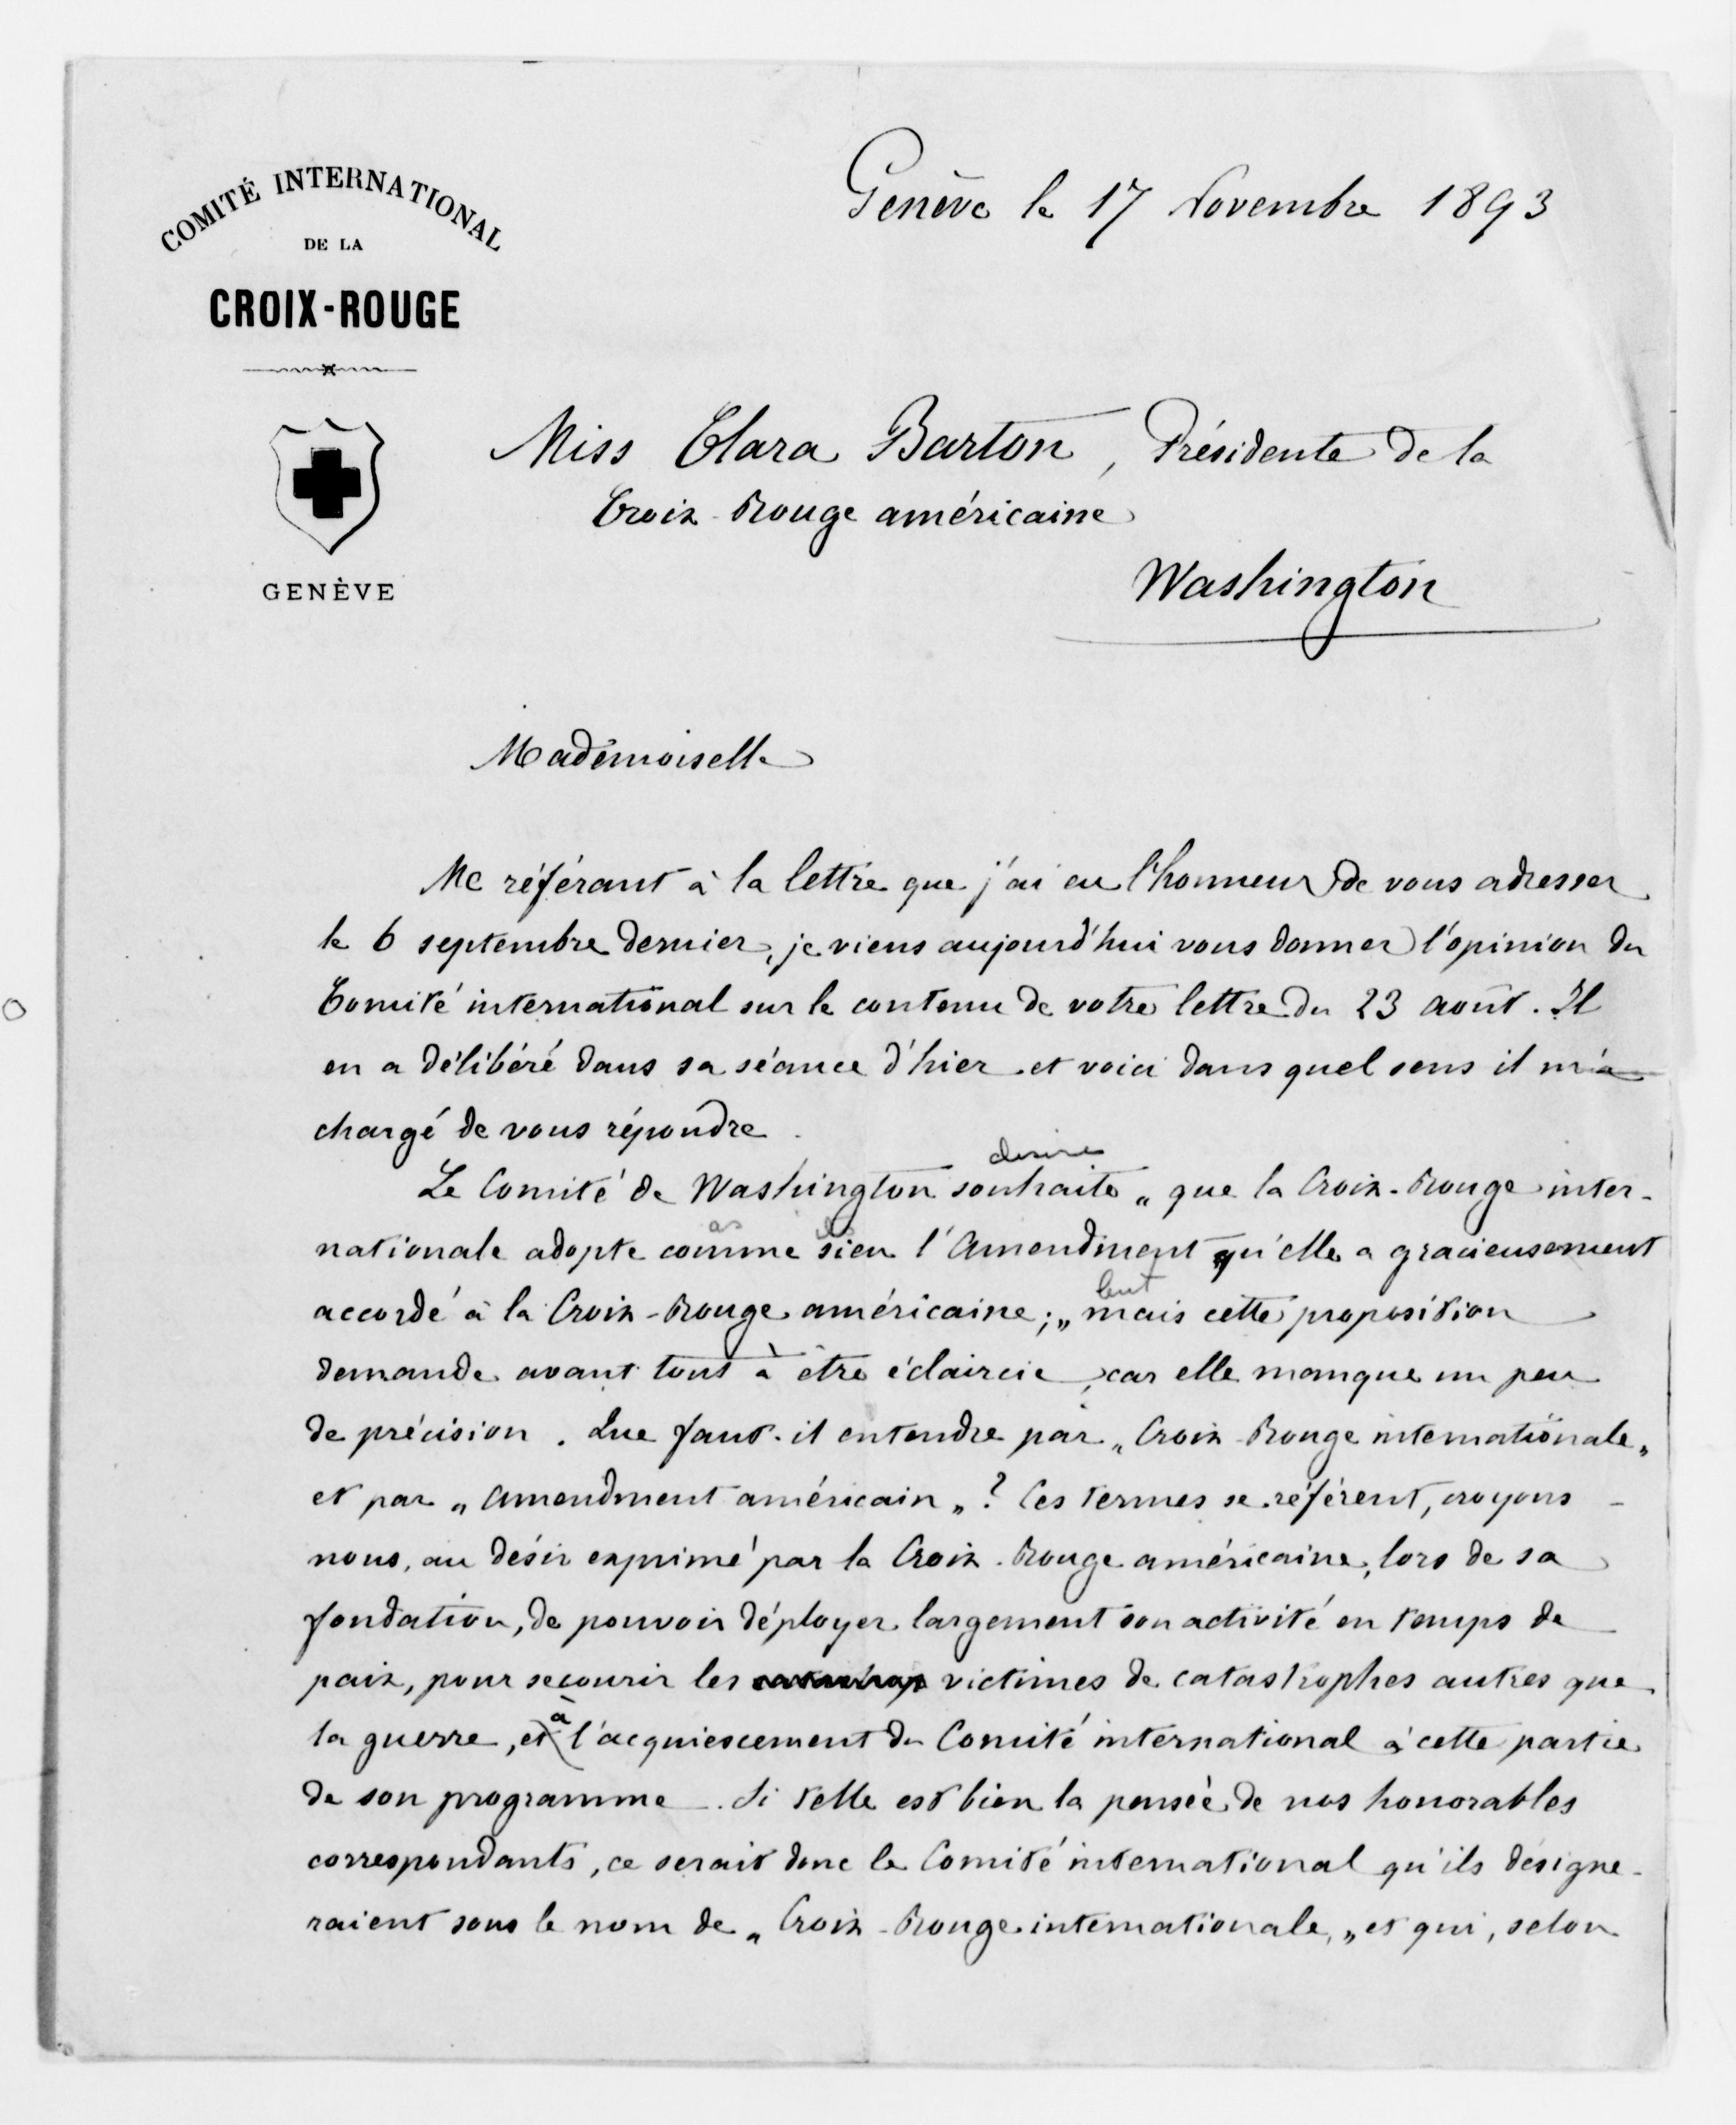 COMITÉ INTERNATIONAL
DE LA
CROIX-ROUGE
GENÈVE
Genève le 17 Novembre 1893
Miss Clara Barton, Présidente de la
Croix-Rouge américaine
Washington
Mademoiselle
Me référant à la lettre que j'ai eu l'honneur de vous adresser
le 6 septembre dernier, je viens aujourd'hui vous donner l'opinion du
Comité international sur le contenu de votre lettre du 23 août. Il
en a délibéré dans sa séance d'hier et voici dans quel sens il m'a
chargé de vous répondre.
desire
Le Comité de Washington souhaite „ que la Croix-Rouge inter-
as
nationale adopte comme sien l'Amendment qu'elle a gracieusement
but
accordé à la Croix-Rouge américaine; „ mais cette proposition
demande avant tout à être éclaircie, car elle manque un peu
de précision. Que faut-il entendre par „ Croix-Rouge internationale „
et par „ Amendment américain „ ? Ces termes se réfèrent, croyons-
nous, au désir exprimé par la Croix-Rouge américaine, lors de sa
fondation, de pouvoir déployer largement son activité en temps de
paix, pour secourir les victimes de catastrophes autres que
la guerre, et à l'acquiescement du Comité international à cette partie
de son programme. Si telle est bien la pensée de nos honorables
correspondants, ce serait donc le Comité international qu'ils désigne-
raient sous le nom de „ Croix-Rouge internationale, „ et qui, selon